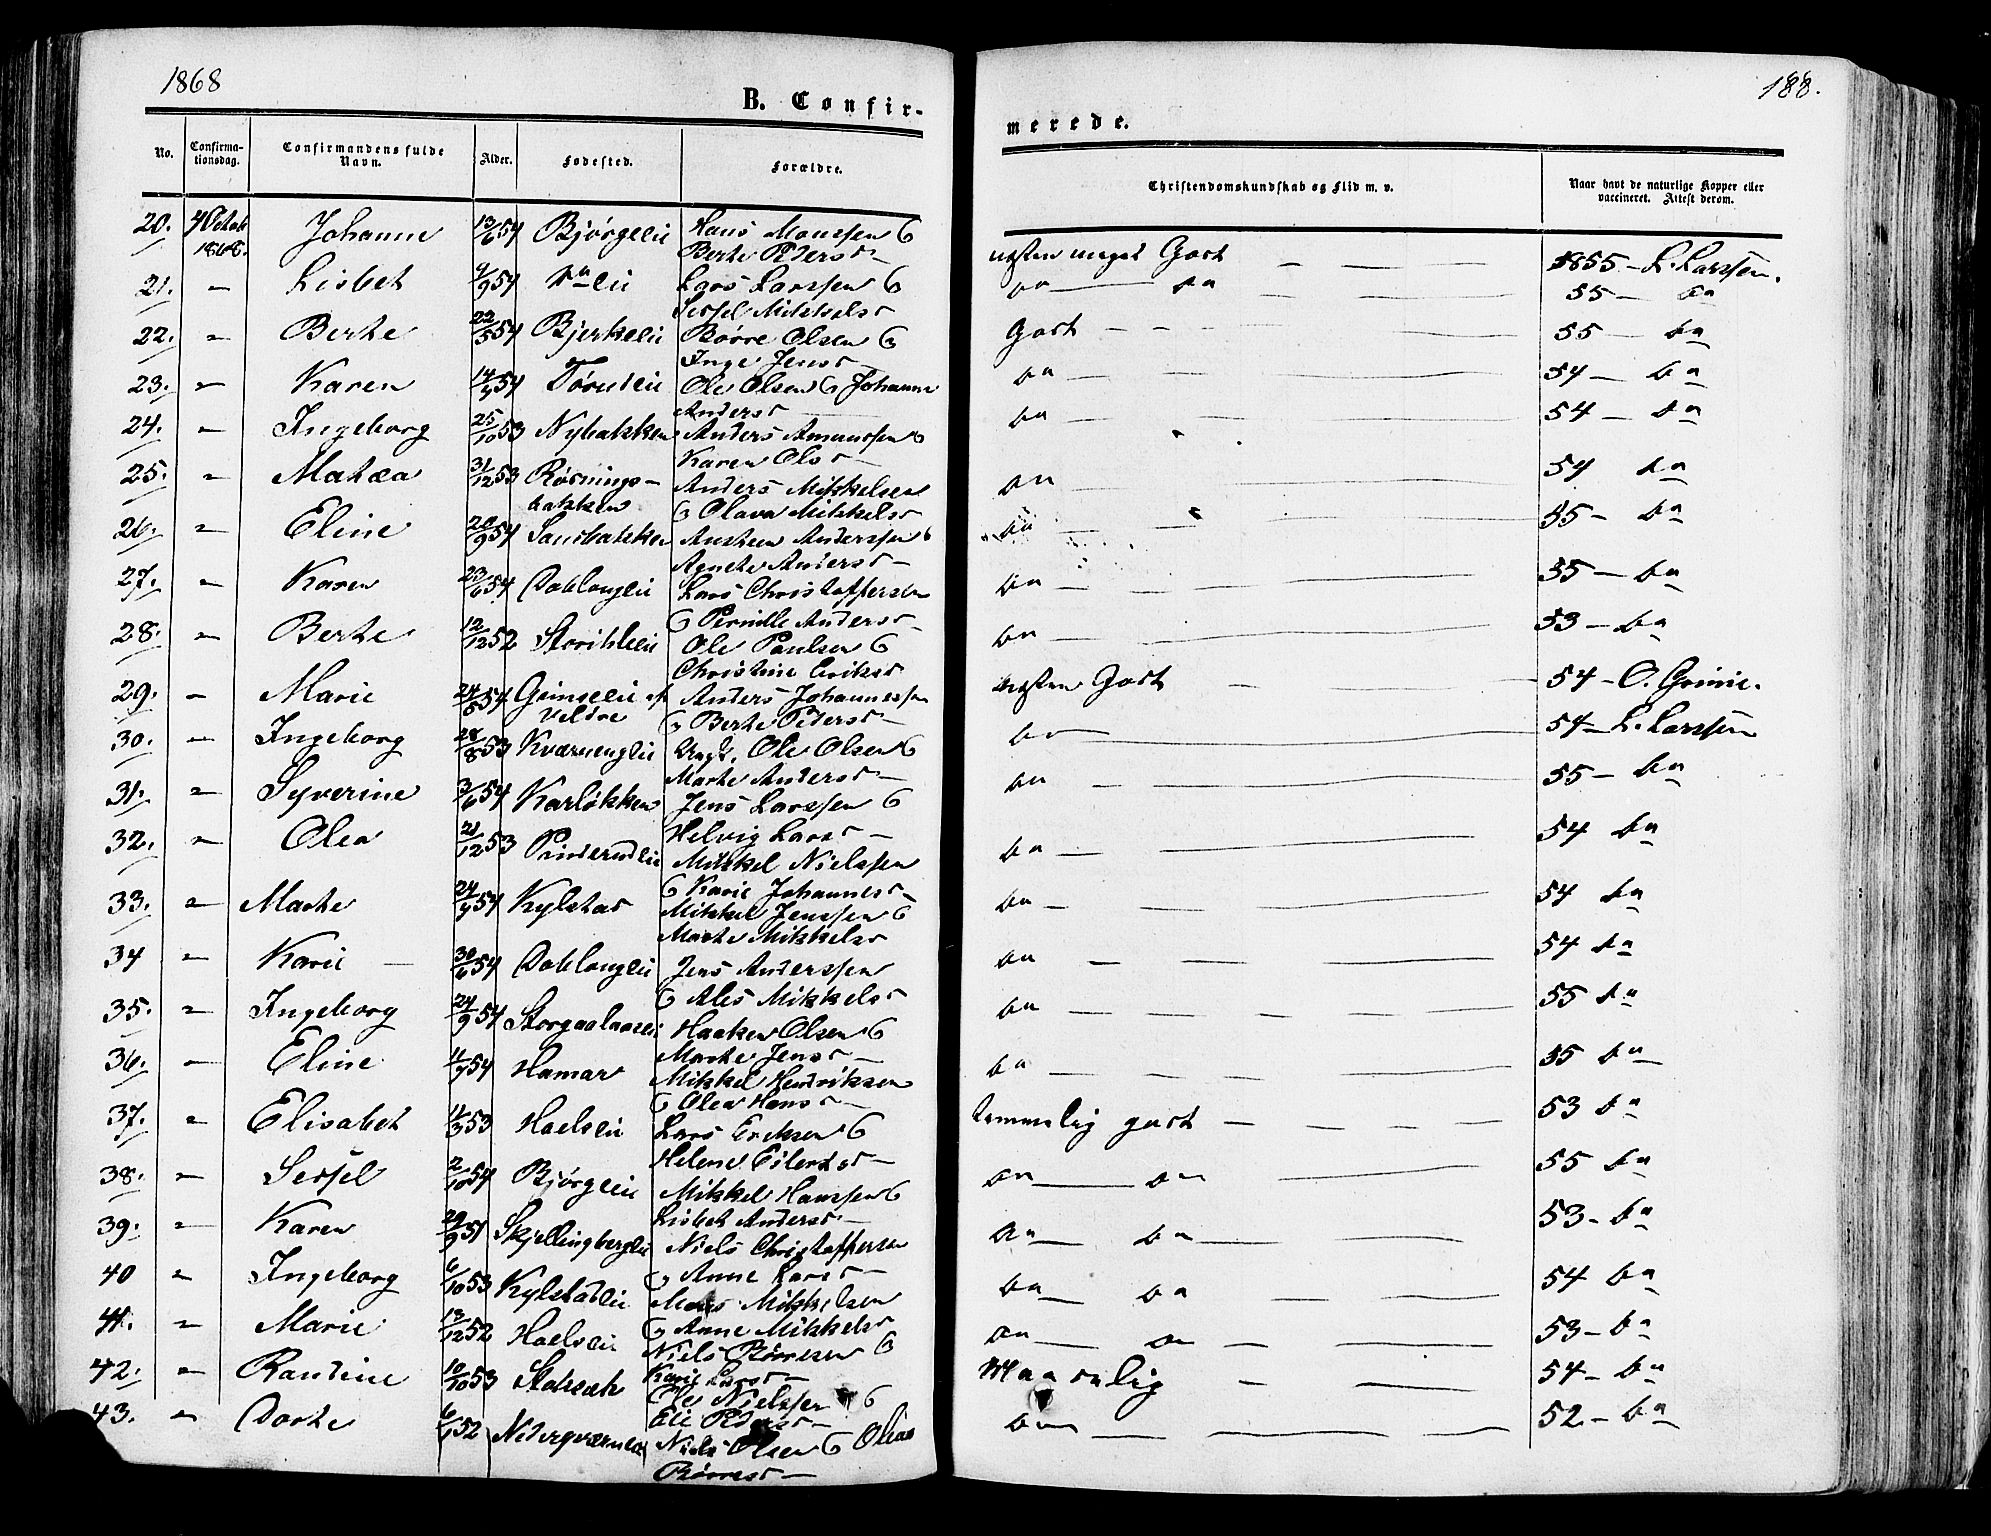 1868
188.
B. Confir-
merede.
No.
Confirma-
tionsdag.
Confirmandens fulde
Navn.
Alder.
Fødested.
Forældre.
Christendomskundskab og Flid m. v.
Naar havt de naturlige Kopper eller
vaccineret. Attest derom.
20. 4 Octob 1868. Johanne 13/6 54 Bjørgelii Hans Monssen &
Berte Peders
næsten meget Godt 1855 - L. Larssen.
21. " Lisbet 9/9 54 Lars Larssen &
Sissel Mikkels
do do 55 - do
22. " Berte 22/5 54 Bjerkelii Børre Olsen &
Inge Jens
Godt 55 - do
23. " Karen Ole Olsen & Johanne
Anders
do 54 - do
24. " Ingeborg 25/10 53 Nybakken Anders Amundsen &
Karen Ols
do 54 - do
25. " Matea 31/12 53 Røsnings-
bakken
Anders Mikkelsen
& Olava Mikkels
do 54 do
26. " Eline 20/9 54 Sandbakken Austeen Anderssen &
Agnete Anders
do 55 - do
27. " Karen 23/6 54 Doblouglii Lars Christoffersen
& Pernille Anders
do 55 - do
28. " Berte 12/12 52 Storihlelii Ole Paulsen &
Christine Eriks
do 53 - do
29. " Marie 24/5 54 Grinselii af
Veldre
Anders Johannessen
& Berte Peders
næsten Godt 54 - O. Grinie.
30. " Ingeborg 28/8 53 Kværnenglii Ungk. Ole Olsen &
Marte Anders
do 54 - L. Larssen
31. " Syverine 3/6 54 Karløkken Jens Larssen &
Helvig Lars
do 55 - do
32. " Olea 21/12 53 Mikkel Nielssen
& Karie Johannes
do 54 do
33. " Marte 54 Kylstad Mikkel Jenssen &
Marte Mikkels
do 54 do
34 " Karie 30/6 54 Doblouglii Jens Anderssen
& Ales Mikkels
do 54 do
35. " Ingeborg 24/9 54 Haaken Olsen &
Marte Jens
do 55 do
36. " Eline 54 Hamar Mikkel Hendriksen
& Olea Hans
do 55 do
37. " Elisabet 53 Hoelslii Lars Eriksen &
Helene Eilerds
temmelig godt 53 do
38. " Sissel 2/10 54 Bjørgelii Mikkel Hanssen &
Lisbet Anders
do do 55 do
39. " Karen 29/9 51 Skjellingberglii Niels Christoffersen
& Anne Lars
do do 53 - do
40 " Ingeborg 6/10 53 Kylstadlii Mons Mikkelsen
& Anne Mikkels
do do 54 do
41. " Marie 13/12 52 Hoelslii Niels Børresen &
Karie Lars
do do 53 - do
42. " Randine 10/10 53 Ole Nielssen &
Eli Peders
Maadelig 54 - do
43. " Dorte 52 Nedreqværnlii Niels Olsen & Olea
Børres
do 52 - do